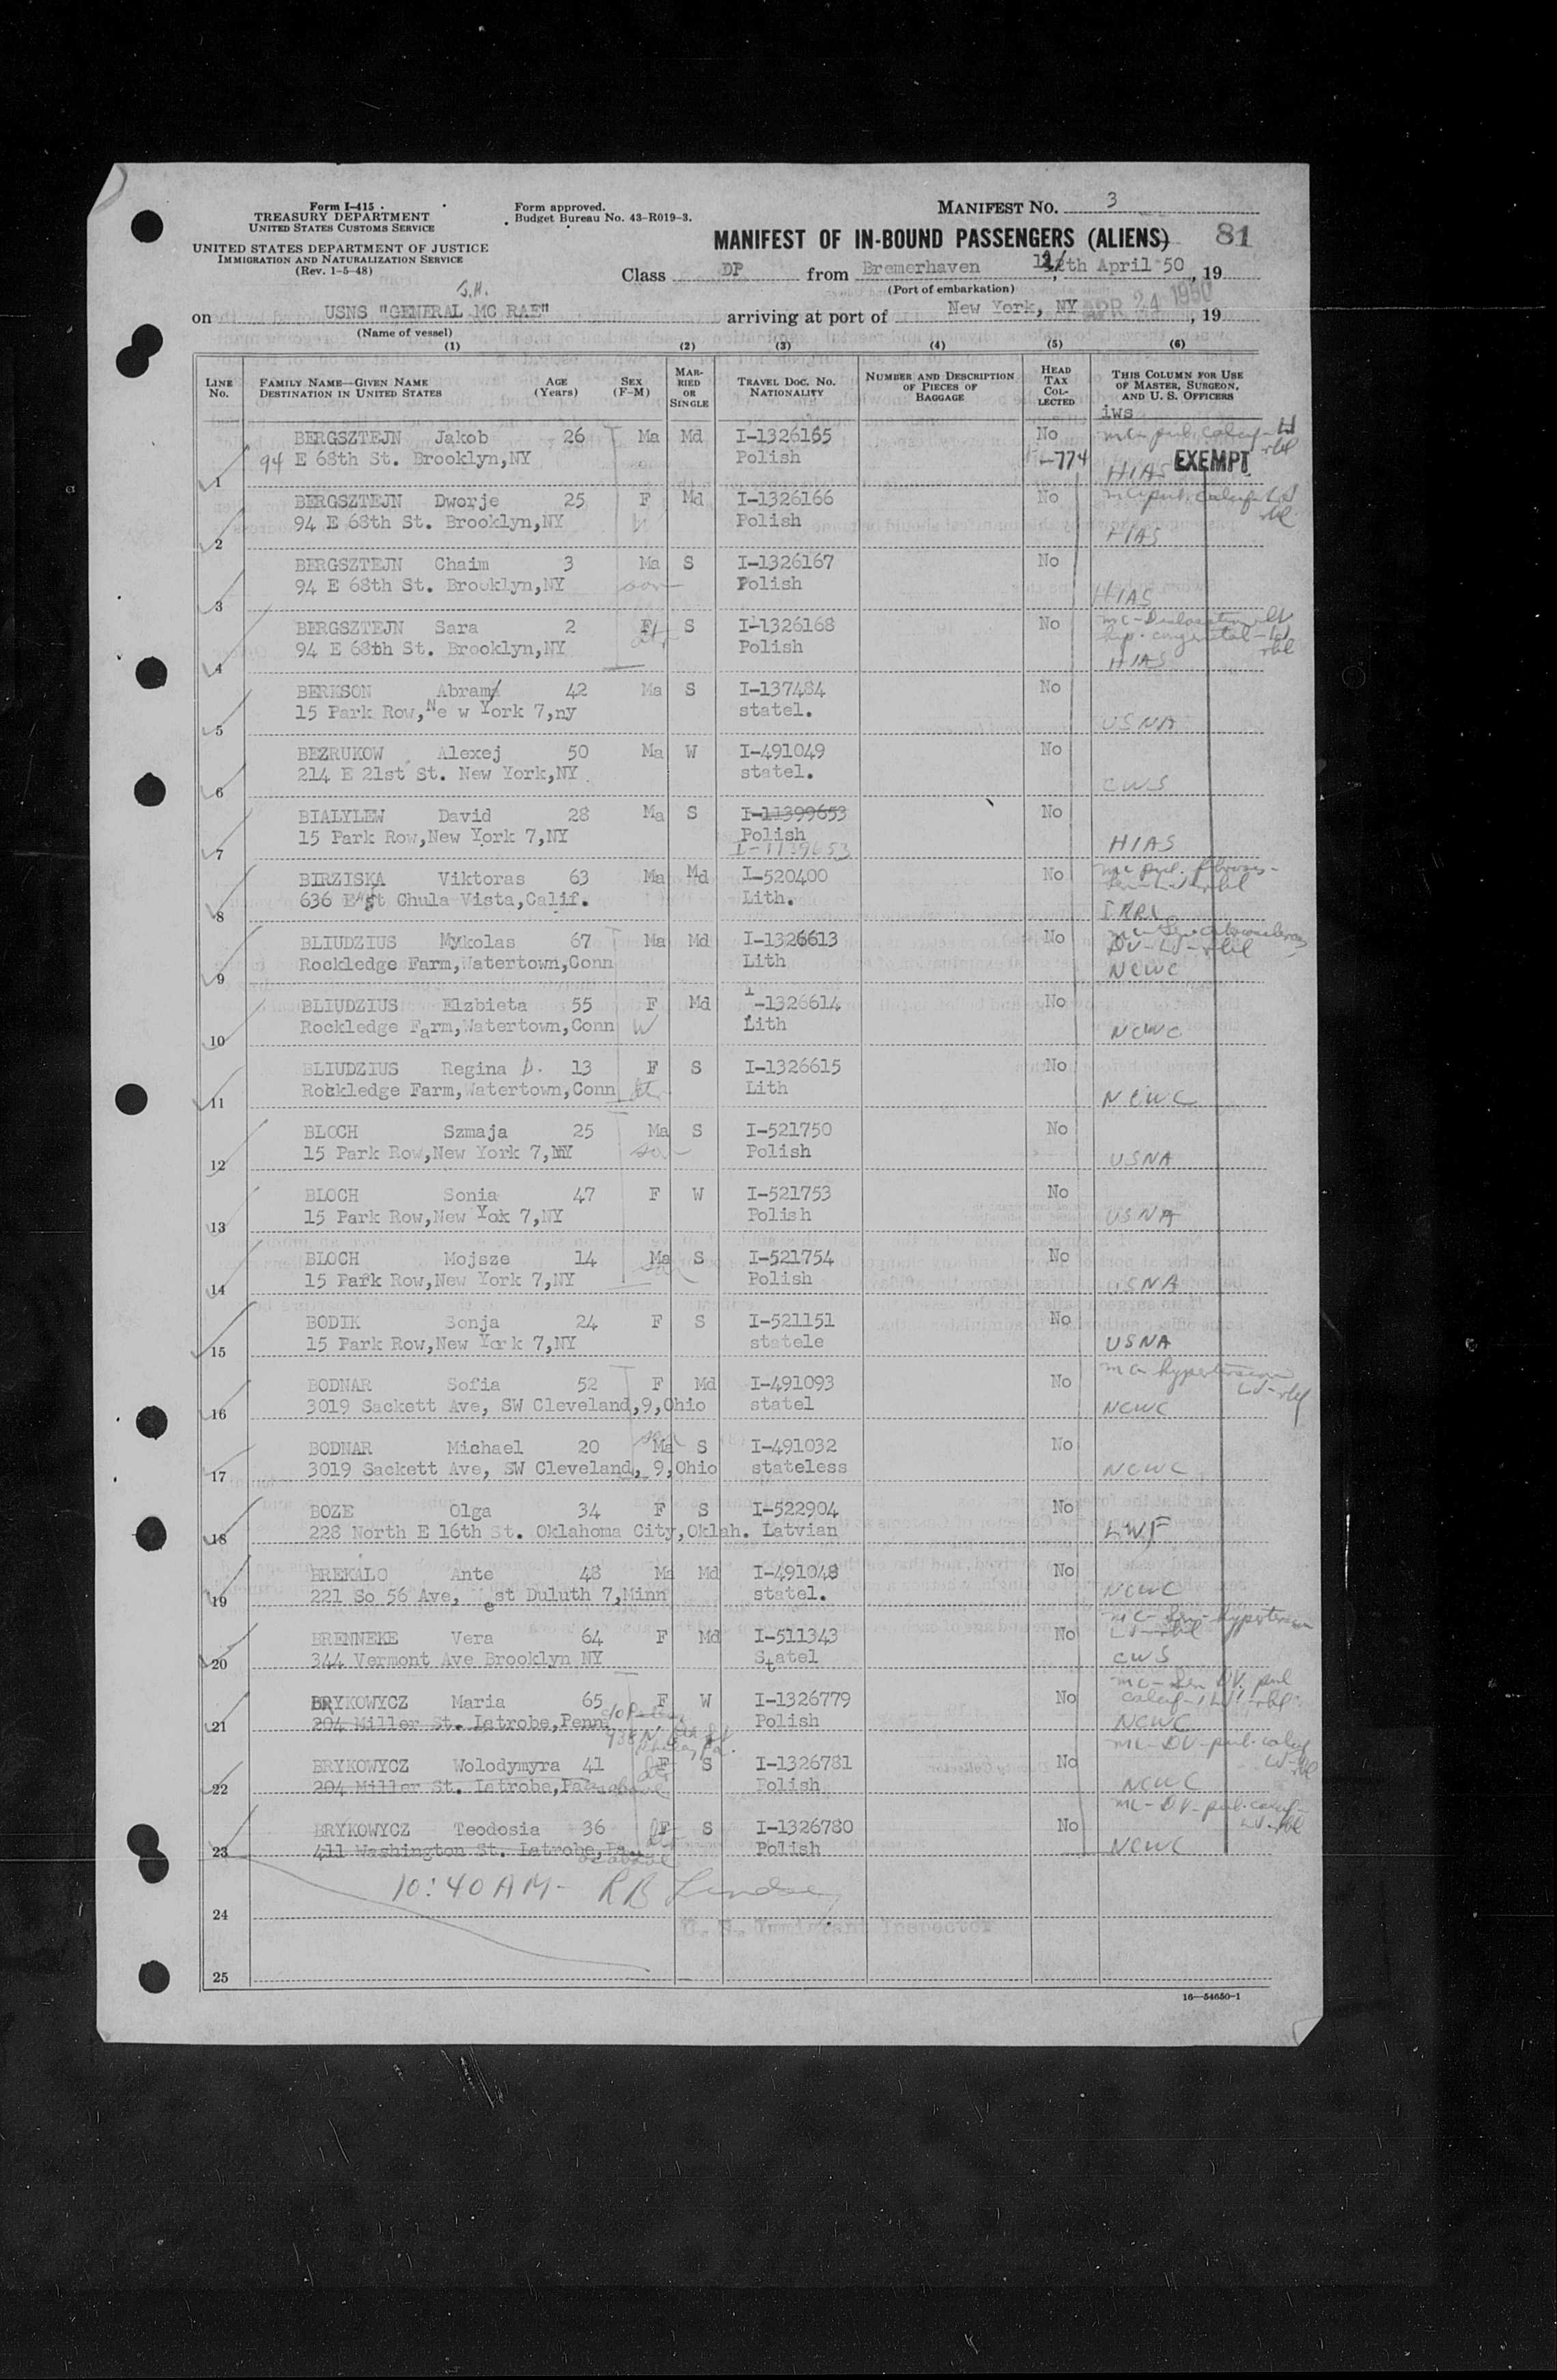 Form I-415
TREASURY DEPARTMENT
UNITED STATES CUSTOMS SERVICE
UNITED STATES DEPARTMENT OF JUSTICE
IMMIGRATION AND NATURALIZATION SERVICE
(Rev. 1-5-48)
Form approved.
Budget Bureau No. 43-R019-3.
MANIFEST NO. 3
MANIFEST OF IN-BOUND PASSENGERS (ALIENS) 81
Class DP from Bremerhaven th April 50, 19
(Port of embarkation)
on USNS "GENERAL MC RAE" arriving at port of New York, NY APR 24 1950, 19
(Name of vessel)
(1) (2) (3) (4) (5) (6)
LINE No. FAMILY NAME—GIVEN NAME DESTINATION IN UNITED STATES AGE (Years) SEX (F-M) MARRIED OR SINGLE TRAVEL DOC. NO. NATIONALITY NUMBER AND DESCRIPTION OF PIECES OF BAGGAGE HEAD TAX COLLECTED THIS COLUMN FOR USE OF MASTER, SURGEON, AND U. S. OFFICERS
iws
BERGSZTEJN Jakob 26 Ma Md I-1326165 No
1 94 E 68th St. Brooklyn,NY Polish -774 HIAS EXEMPT
BERGSZTEJN Dworje 25 F Md I-1326166 No
2 94 E 68th St. Brooklyn,NY W Polish HIAS
BERGSZTEJN Chaim 3 Ma S I-1326167 No
3 94 E 68th St. Brooklyn,NY son Polish HIAS
BERGSZTEJN Sara 2 F S I-1326168 No
4 94 E 68th St. Brooklyn,NY Polish HIAS
BERKSON Abram 42 Ma S I-137484 No
5 15 Park Row,Ne w York 7,ny statel. USNA
BEZRUKOW Alexej 50 Ma W I-491049 No
6 214 E 21st St. New York,NY. statel. CWS
BIALYLEW David 28 Ma S I-11399653 No
7 15 Park Row,New York 7,NY Polish HIAS
I-1139653
BIRZISKA Viktoras 63 Ma Md I-520400 No
8 636 East Chula Vista,Calif. Lith.
BLIUDZIUS Mykolas 67 Ma Md I-1326613 No
9 Rockledge Farm,Watertown,Conn Lith NCWC
BLIUDZIUS Elzbieta 55 F Md I-1326614 No
10 Rockledge Farm,Watertown,Conn W Lith NCWC
BLIUDZIUS Regina D. 13 F S I-1326615 No
11 Rockledge Farm,Watertown,Conn Lith NCWC
BLOCH Szmaja 25 Ma S I-521750 No
12 15 Park Row,New York 7,NY son Polish USNA
BLOCH Sonia 47 F W I-521753 No
13 15 Park Row,New Yok 7,NY Polish USNA
BLOCH Mojsze 14 Ma S I-521754 No
14 15 Park Row,New York 7,NY Polish USNA
BODIK Sonja 24 F S I-521151 No
15 15 Park Row,New York 7,NY statele USNA
BODNAR Sofia 52 F Md I-491093 No mc-hypertension
16 3019 Sackett Ave, SW Cleveland,9,Ohio statel NCWC
BODNAR Michael 20 Ma S I-491032 No
17 3019 Sackett Ave, SW Cleveland, 9,Ohio stateless NCWC
BOZE Olga 34 F S I-522904 No
18 228 North E 16th St. Oklahoma City,Oklah. Latvian LWF
BREKALO Ante 48 Ma Md I-491048 No
19 221 So 56 Ave, est Duluth 7,Minn statel. NCWC
BRENNEKE Vera 64 F Md I-511343 No
20 344 Vermont Ave Brooklyn NY Statel CWS
BRYKOWYCZ Maria 65 F W I-1326779 No
21 204 Miller St. Latrobe,Penn. Polish NCWC
BRYKOWYCZ Wolodymyra 41 F S I-1326781 No
22 204 Miller St. Latrobe,Pa as above Polish NCWC
BRYKOWYCZ Teodosia 36 F S I-1326780 No
23 411 Washington St. Latrobe,Pa. as above Polish NCWC
10:40 AM- RB Lindsey
24 U. S. Immigrant Inspector
25
16—54650-1